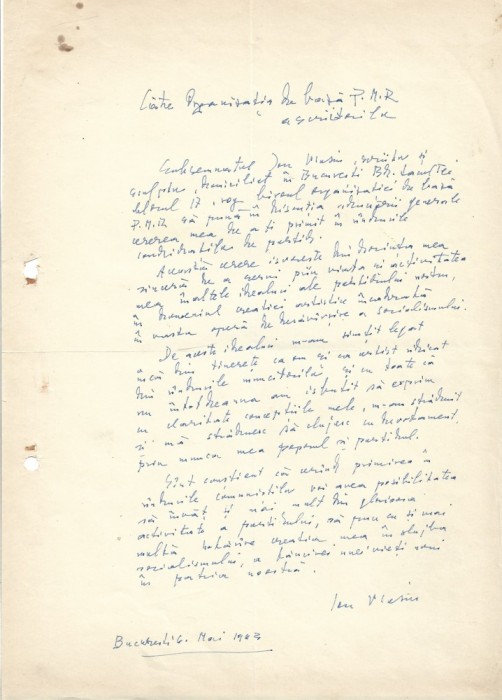 Către Organizația de bază P.M.R
a scriitorilor
Subsemnatul Ion Vlasiu, scriitor și
sculptor, domiciliat în București Bd.
blocul 17, rog biroul organizației de bază
P.M.R. să pună în discuția ședinței generale
cererea mea de a fi primit în rîndurile
candidaților de partid.
Această cerere izvorește din dorința mea
sinceră de a servi prin viața și activitatea
mea înaltele idealuri ale partidului nostru,
în domeniul creației artistice încadrată
în vasta operă de desăvîrșire a socialismului.
De aceste idealuri m-am simțit legat
încă din tinerețe ca om și ca artist ridicat
din rîndurile muncitorilor și cu toate că
nu întotdeauna am izbutit să exprim
cu claritate concepțiile mele, m-am străduit
și mă străduiesc să slujesc cu devotament
prin munca mea poporul și partidul.
Sînt conștient că cerînd primirea în
rîndurile comuniștilor voi avea posibilitatea
să învăț și mai mult din glorioasa
activitate a partidului, să pun cu și mai
multă hotărîre creația mea în slujba
socialismului, a înfloririi unei vieți noi
în patria noastră.
Ion Vlasiu
București 6. Mai 1963